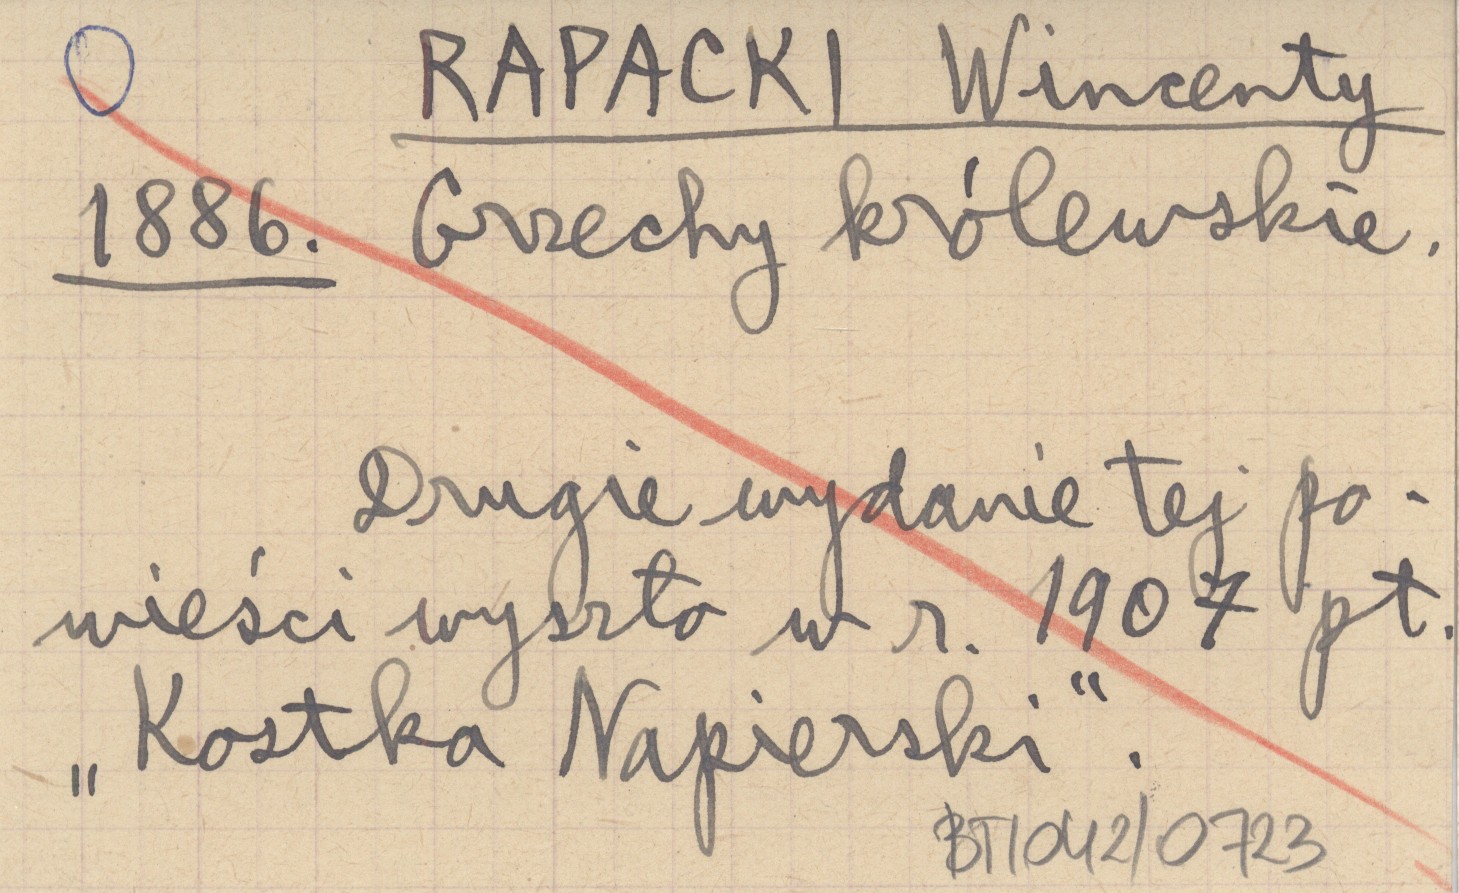 RAPACKI Wincenty
1886. Grzechy królewskie.
Drugie wydanie tej po-
wieści wyszło w r. 1907 pt.
„Kostka Napierski".
BT1042/0723